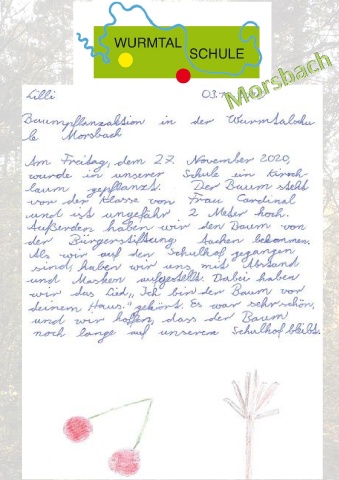 WURMTAL
SCHULE
Morsbach
Lilli 03.
Baumpflanzaktion in der Wurmtalschu
le Morsbach
Am Freitag, dem 27. November 2020,
wurde in unserer Schule ein Kirsch-
baum gepflanzt. Der Baum steht
vor der Klasse von Frau Cardinal
und ist ungefähr 2 Meter hoch.
Außerden haben wir den Baum von
der Bürgerstiftung Aachen bekommen.
Als wir auf den Schulhof gegangen
sind, haben wir uns mit Abstand
und Masken aufgestellt. Dabei haben
wir das Lied „Ich bin der Baum vor
deinem Haus." gehört. Es war sehr schön,
und wir hoffen, dass der Baum
noch lange auf unserem Schulhof bleibt.